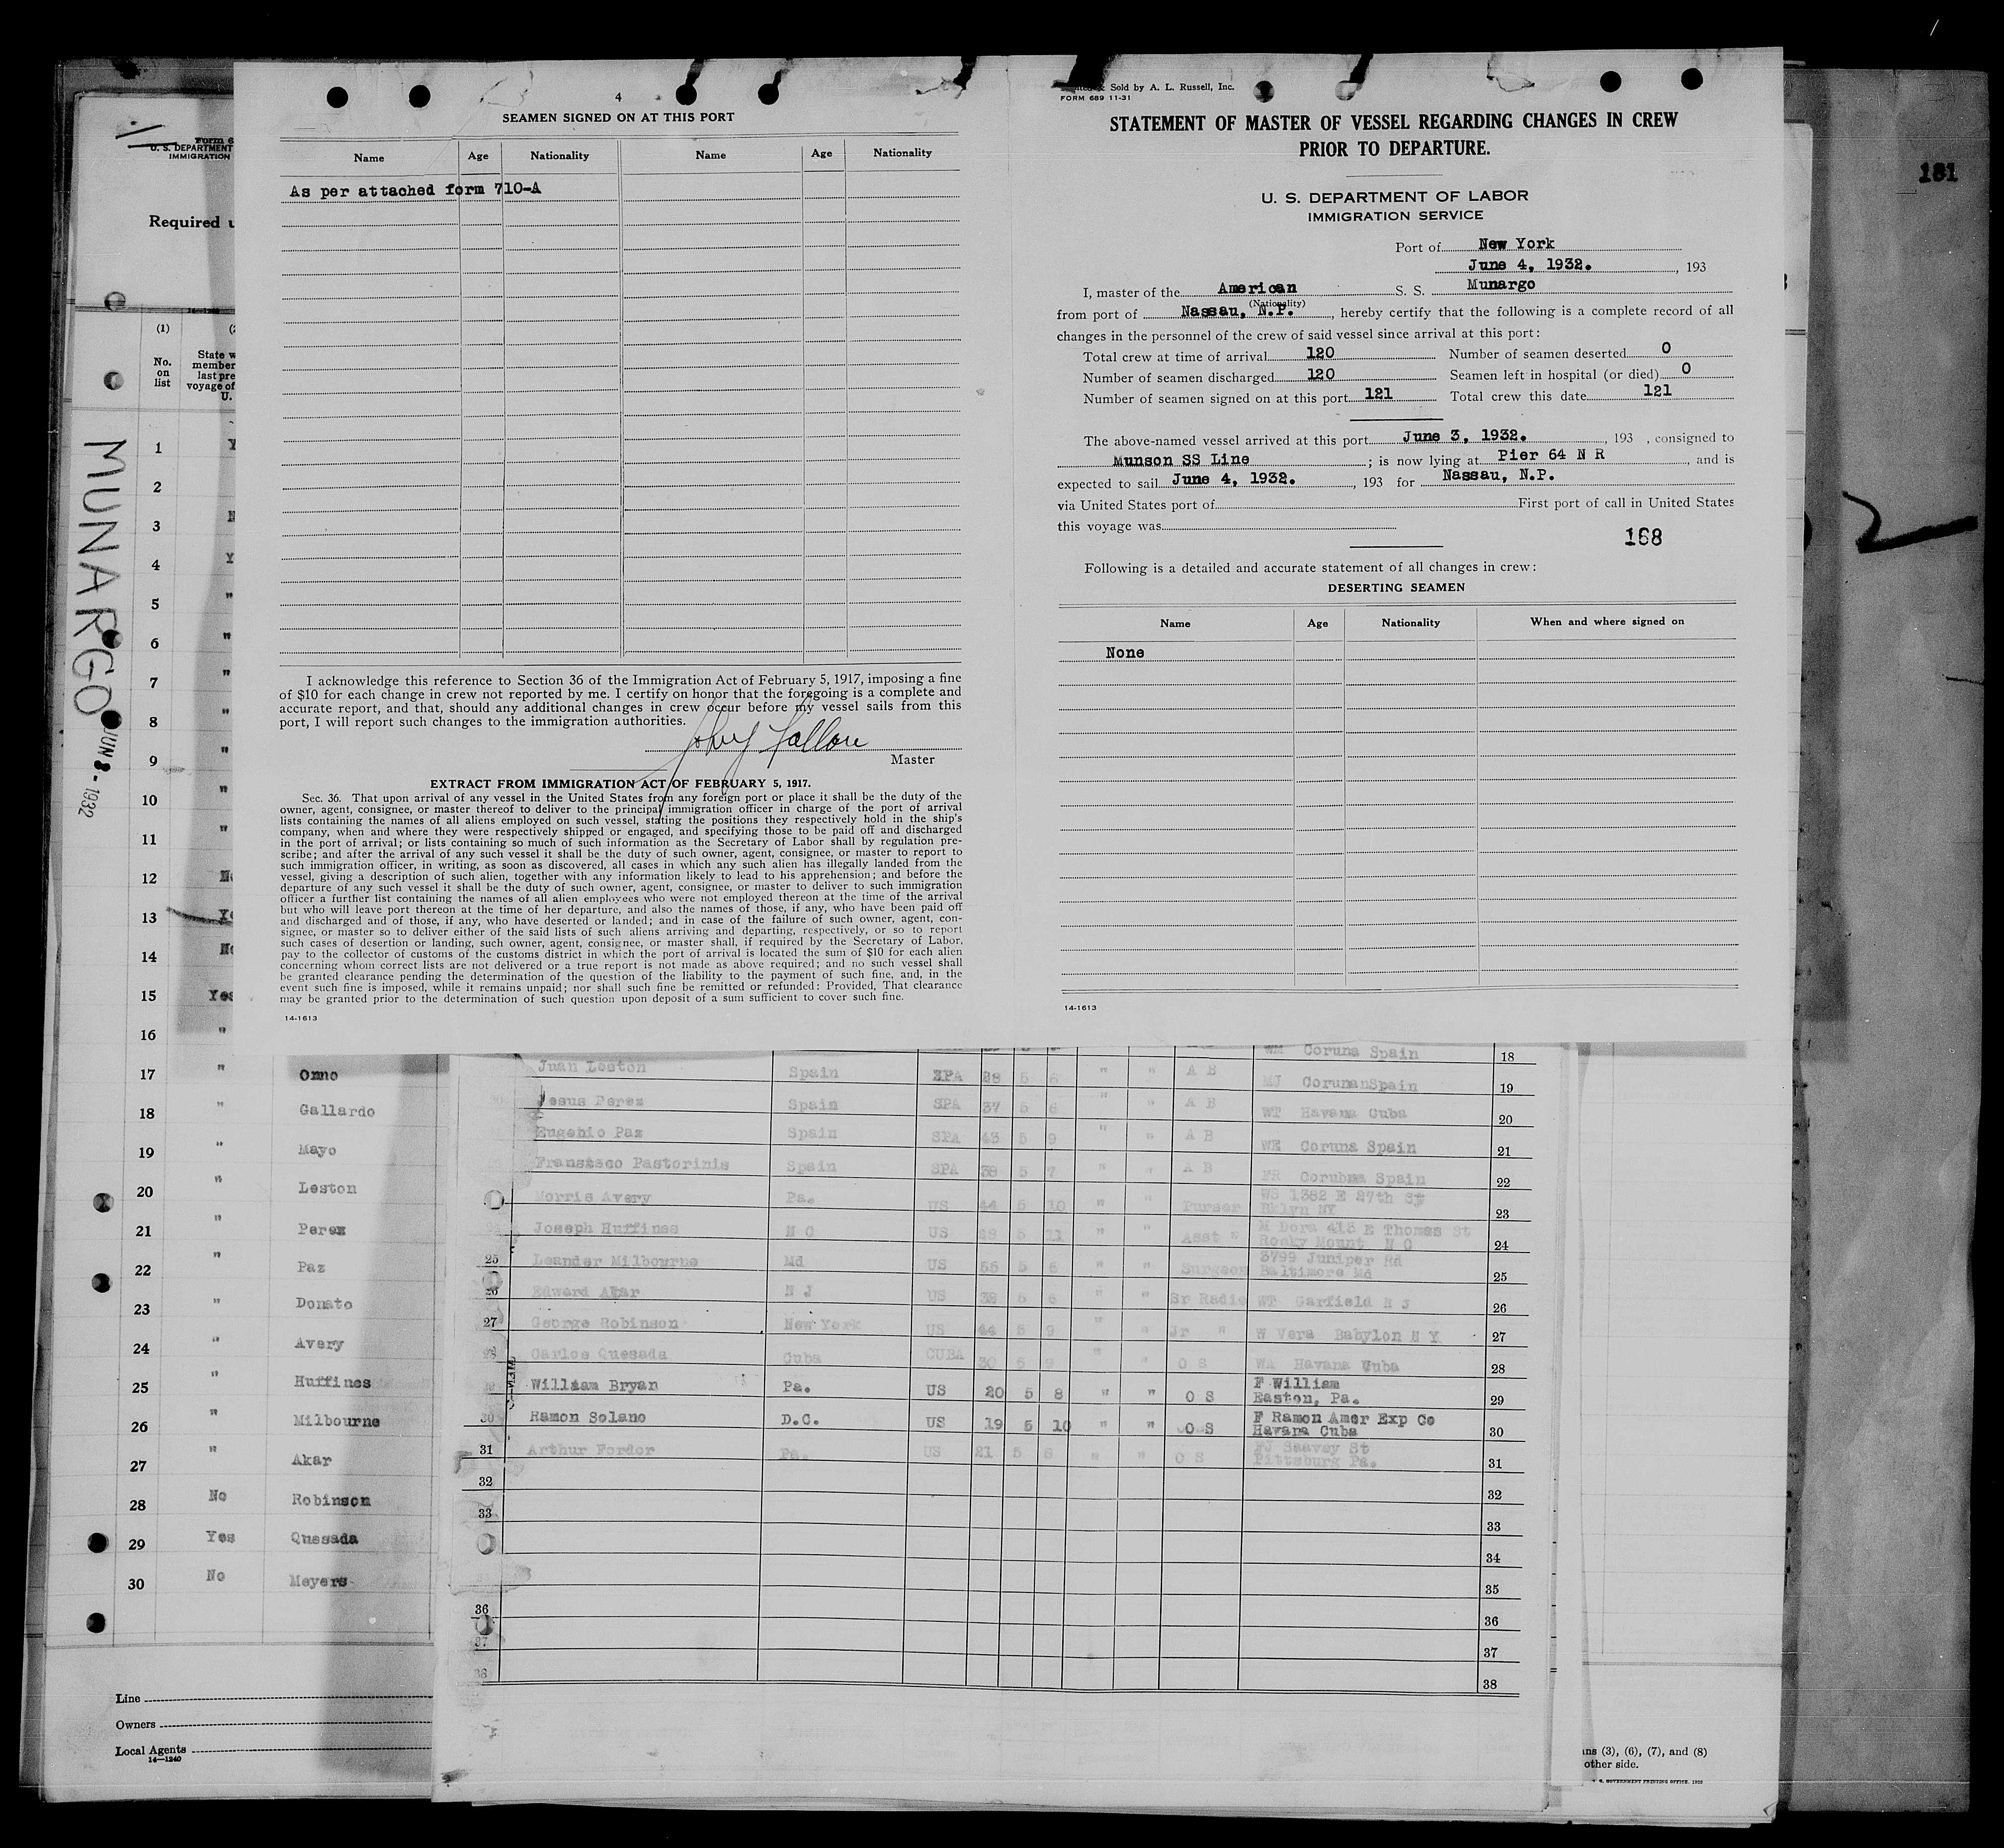 181
4
SEAMEN SIGNED ON AT THIS PORT
Name Age Nationality Name Age Nationality
As per attached form 710-A
I acknowledge this reference to Section 36 of the Immigration Act of February 5, 1917, imposing a fine
of $10 for each change in crew not reported by me. I certify on honor that the foregoing is a complete and
accurate report, and that, should any additional changes in crew occur before my vessel sails from this
port, I will report such changes to the immigration authorities.
Master
EXTRACT FROM IMMIGRATION ACT OF FEBRUARY 5, 1917.
Sec. 36. That upon arrival of any vessel in the United States from any foreign port or place it shall be the duty of the
owner, agent, consignee, or master thereof to deliver to the principal immigration officer in charge of the port of arrival
lists containing the names of all aliens employed on such vessel, stating the positions they respectively hold in the ship's
company, when and where they were respectively shipped or engaged, and specifying those to be paid off and discharged
in the port of arrival; or lists containing so much of such information as the Secretary of Labor shall by regulation pre-
scribe; and after the arrival of any such vessel it shall be the duty of such owner, agent, consignee, or master to report to
such immigration officer, in writing, as soon as discovered, all cases in which any such alien has illegally landed from the
vessel, giving a description of such alien, together with any information likely to lead to his apprehension; and before the
departure of any such vessel it shall be the duty of such owner, agent, consignee, or master to deliver to such immigration
officer a further list containing the names of all alien employees who were not employed thereon at the time of the arrival
but who will leave port thereon at the time of her departure, and also the names of those, if any, who have been paid off
and discharged and of those, if any, who have deserted or landed; and in case of the failure of such owner, agent, con-
signee, or master so to deliver either of the said lists of such aliens arriving and departing, respectively, or so to report
such cases of desertion or landing, such owner, agent, consignee, or master shall, if required by the Secretary of Labor,
pay to the collector of customs of the customs district in which the port of arrival is located the sum of $10 for each alien
concerning whom correct lists are not delivered or a true report is not made as above required; and no such vessel shall
be granted clearance pending the determination of the question of the liability to the payment of such fine, and, in the
event such fine is imposed, while it remains unpaid; nor shall such fine be remitted or refunded: Provided, That clearance
may be granted prior to the determination of such question upon deposit of a sum sufficient to cover such fine.
14-1613
Sold by A. L. Russell, Inc.
FORM 689 11-31
STATEMENT OF MASTER OF VESSEL REGARDING CHANGES IN CREW
PRIOR TO DEPARTURE.
U. S. DEPARTMENT OF LABOR
IMMIGRATION SERVICE
Port of New York
June 4, 1932. , 193
I, master of the American S. S. Munargo
(Nationality)
from port of Nassau, N.P. , hereby certify that the following is a complete record of all
changes in the personnel of the crew of said vessel since arrival at this port:
Total crew at time of arrival 120 Number of seamen deserted 0
Number of seamen discharged 120 Seamen left in hospital (or died) 0
Number of seamen signed on at this port 121 Total crew this date 121
The above-named vessel arrived at this port June 3, 1932. , 193 , consigned to
Munson SS Line ; is now lying at Pier 64 N R , and is
expected to sail June 4, 1932. , 193 for Nassau, N.P.
via United States port of First port of call in United States
this voyage was
168
Following is a detailed and accurate statement of all changes in crew:
DESERTING SEAMEN
Name Age Nationality When and where signed on
None
14-1613
U. S. DEPARTMENT
IMMIGRATION
Required
(1)
No. on list
State
member
last pre
voyage of
U.
MUNARGO
JUN 8 - 1932
1 Y
2
3
4 Y
5 "
6 "
7 "
8 "
9 "
10 "
11 "
12
13
14
15 Yes
16 "
17 " Onno
18 " Gallardo
19 " Mayo
20 " Leston
21 " Perez
22 " Paz
23 " Donato
24 " Avery
25 " Huffines
26 " Milbourne
27 " Akar
28 No Robinson
29 Yes Quesada
30 No Meyers
Line
Owners
Local Agents
14-1240
Coruna Spain 18
Juan Leston Spain SPA 38 5 " " A B MJ CorunanSpain 19
Jesus Perez Spain SPA 37 5 6 " " A B WT Havana Cuba 20
Eugenio Paz Spain SPA 43 5 9 " " A B WE Coruna Spain 21
Fransisco Pastorinis Spain SPA 38 5 7 " " A B Spain 22
Morris Avery Pa. US 44 5 10 " " Purser WS 1382 E 27th St
Bklyn NY 23
Joseph Huffines N C US 28 5 11 " " Asst " M Dora 413 E Thomas St
Rocky Mount N C 24
25 Leander Milbourne Md US 55 5 6 " " Surgeon 3799 Juniper Rd
Baltimore Md 25
26 Edward Akar N J US 38 5 6 " " Sr Radio WT Garfield N J 26
27 George Robinson New York US 44 5 9 " " Jr " W Vera Babylon N Y 27
28 Carlos Quesada Cuba CUBA 30 5 9 " " O S WA Havana Cuba 28
William Bryan Pa. US 20 5 8 " " O S F William
Easton, Pa. 29
30 Ramon Solano D.C. US 19 5 10 " " O S F Ramon Amer Exp Co
Havana Cuba 30
31 Arthur Fordor Pa. US 21 5 6 " " O S St
Pittsburg Pa. 31
32 32
33 33
34
35
36 36
37 37
38 38
(3), (6), (7), and (8)
other side.
GOVERNMENT PRINTING OFFICE